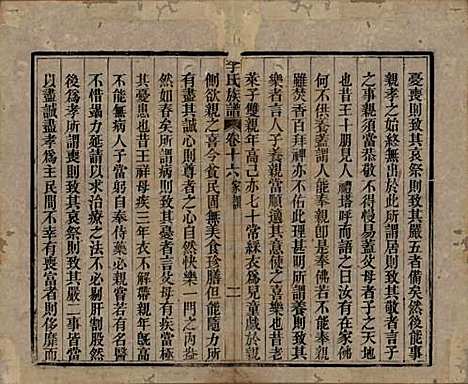 憂喪則致其哀祭則致其嚴五者備矣然後能事
親孝之始終無出於此所謂居則致其敬者言子
之事親須當恭敬不得慢易蓋父母者子之天地
也昔王十朋見人禮塔呼而語之曰汝有在家佛
何不供養蓋謂人能奉親即是奉佛若不能奉親
雖焚香百拜神亦不佑此理甚明所謂養則致其
樂者言人子養親當順適其意使之喜樂也昔老
萊子雙親年高己亦七十常綵衣為兒童戲於親
李氏族譜 卷十六 家訓
側欲親之喜今貧民固無美食珍膳但能隨力所
有以盡誠心則尊者之心自然快樂一門之內藹
然如春矣所謂病則致其憂者言父母有疾當極
其憂思也昔人王祥母疾三年衣不解帶親年既高
不能無病人子當躬自奉侍藥必親嘗若有名醫
不惜竭力延請以求治療之法不必剔肝割股然
後為孝所謂喪則致其哀祭則致其嚴一事皆當
以盡誠盡孝為主民間不幸有喪富者則侈靡而